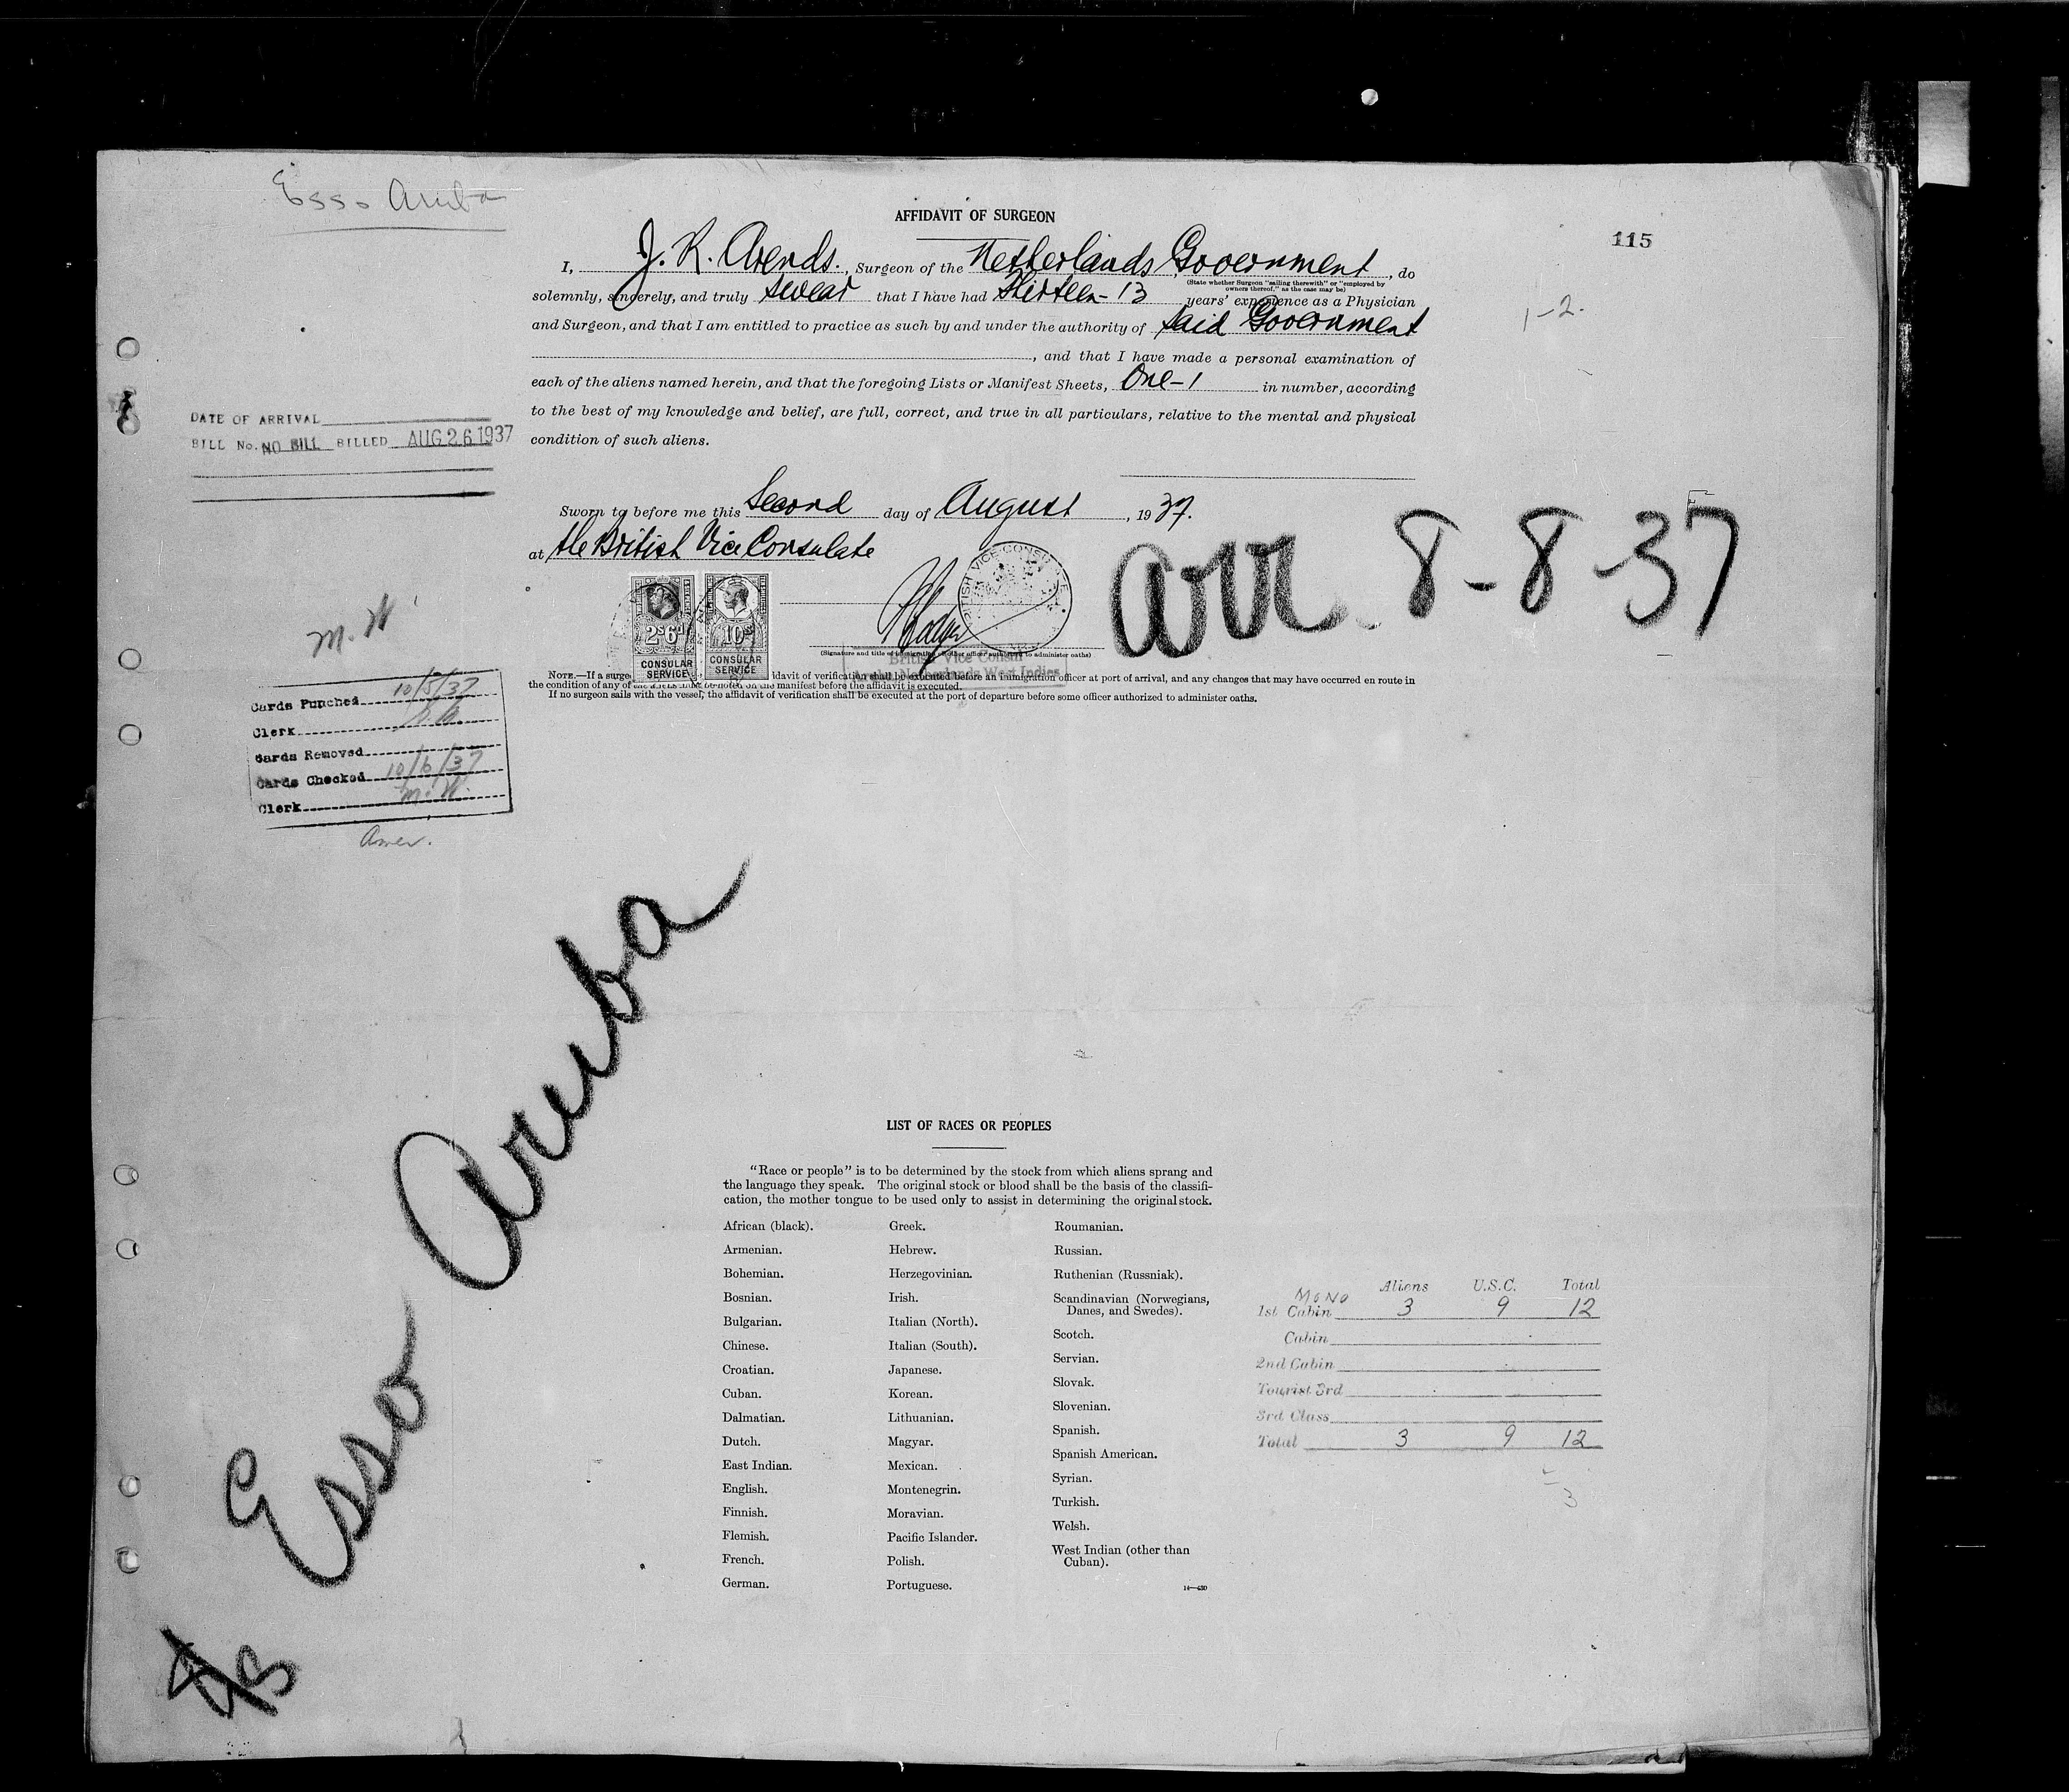 Esso Aruba
AFFIDAVIT OF SURGEON
115
I, J. R. Arends., Surgeon of the Netherlands Government, do
(State whether Surgeon "sailing therewith" or "employed by
owners thereof," as the case may be)
solemnly, sincerely, and truly swear that I have had Thirteen-13 years' experience as a Physician
1-2.
and Surgeon, and that I am entitled to practice as such by and under the authority of said Government
, and that I have made a personal examination of
each of the aliens named herein, and that the foregoing Lists or Manifest Sheets, One-1 in number, according
to the best of my knowledge and belief, are full, correct, and true in all particulars, relative to the mental and physical
condition of such aliens.
DATE OF ARRIVAL
BILL No. NO BILL BILLED AUG 26 1937
Sworn to before me this Second day of August, 1937.
at the British Vice Consulate
arr. 8-8-37
BRITISH VICE CONSULATE
2s6d
CONSULAR
SERVICE
10s
CONSULAR
SERVICE
(Signature and title of immigration or other officer authorized to administer oaths)
British Vice Consul
Netherlands West Indies
NOTE.—If a surge idavit of verification shall be executed before an immigration officer at port of arrival, and any changes that may have occurred en route in
the condition of any of the aliens must be noted on the manifest before the affidavit is executed.
If no surgeon sails with the vessel, the affidavit of verification shall be executed at the port of departure before some officer authorized to administer oaths.
M. W.
Cards Punched 10/5/37
Clerk
Cards Removed
Cards Checked 10/6/37
Clerk M. W.
Amer.
Esso Aruba
LIST OF RACES OR PEOPLES
"Race or people" is to be determined by the stock from which aliens sprang and
the language they speak. The original stock or blood shall be the basis of the classifi-
cation, the mother tongue to be used only to assist in determining the original stock.
African (black).
Armenian.
Bohemian.
Bosnian.
Bulgarian.
Chinese.
Croatian.
Cuban.
Dalmatian.
Dutch.
East Indian.
English.
Finnish.
Flemish.
French.
German.
Greek.
Hebrew.
Herzegovinian.
Irish.
Italian (North).
Italian (South).
Japanese.
Korean.
Lithuanian.
Magyar.
Mexican.
Montenegrin.
Moravian.
Pacific Islander.
Polish.
Portuguese.
Roumanian.
Russian.
Ruthenian (Russniak).
Scandinavian (Norwegians,
Danes, and Swedes).
Scotch.
Servian.
Slovak.
Slovenian.
Spanish.
Spanish American.
Syrian.
Turkish.
Welsh.
West Indian (other than
Cuban).
14—430
Aliens U.S.C. Total
MONO
1st Cabin 3 9 12
Cabin
2nd Cabin
Tourist 3rd
3rd Class
Total 3 9 12
3